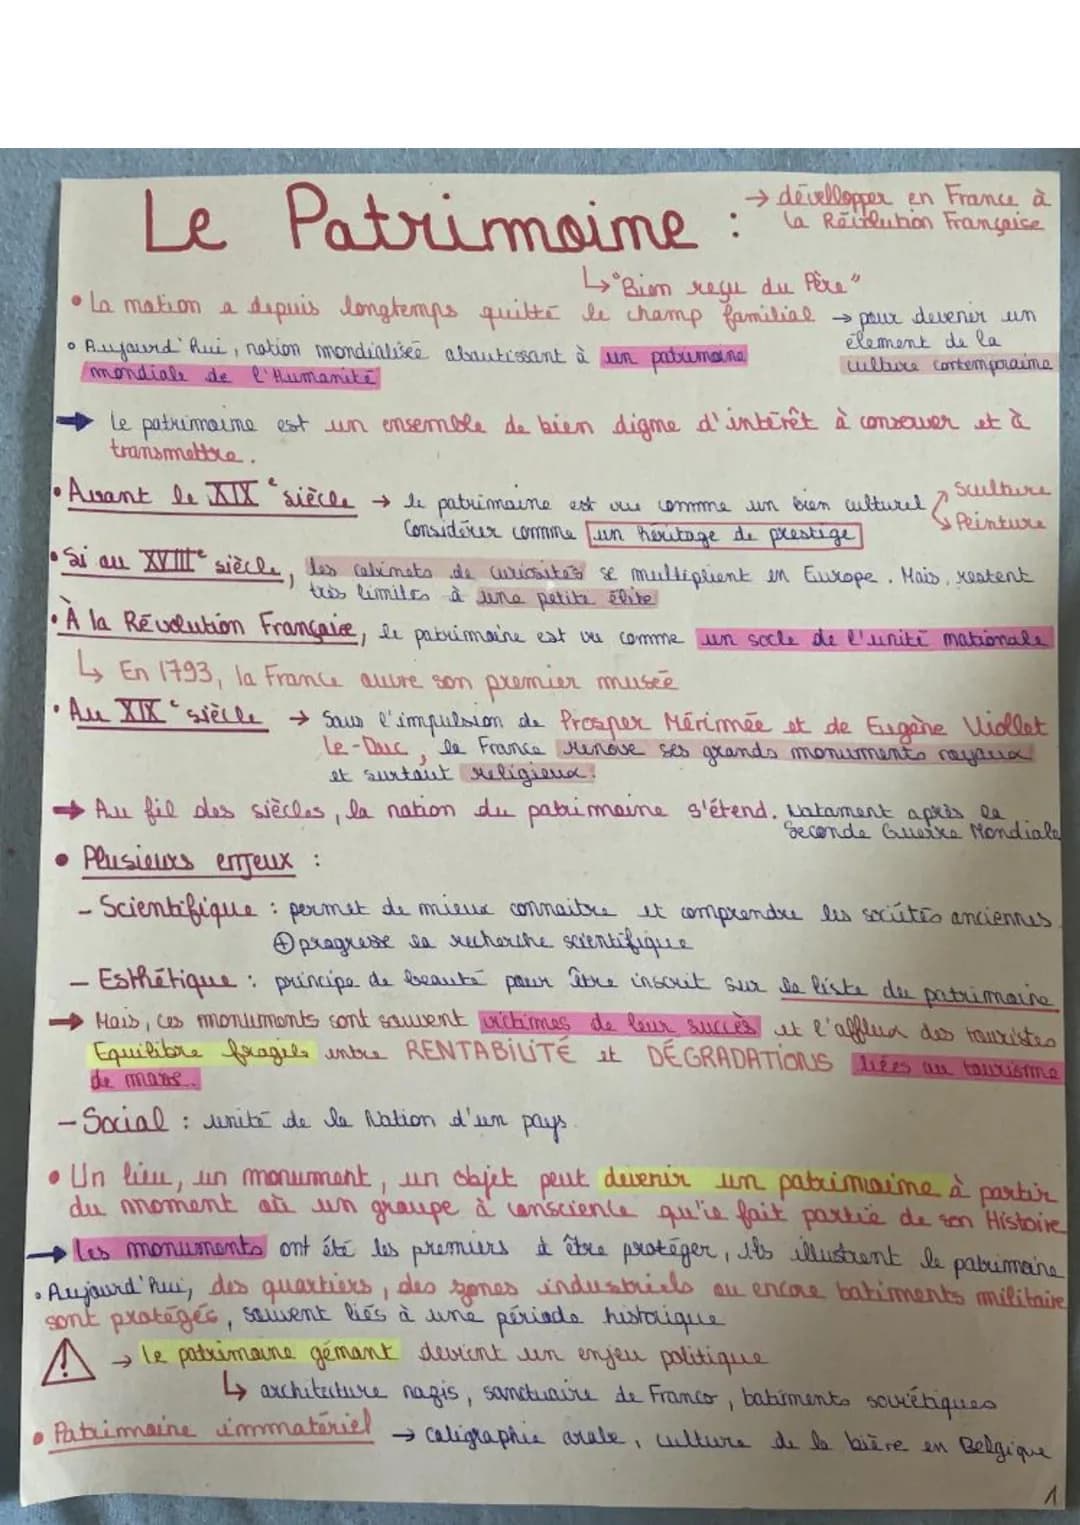 Le Patrimoine :
→ développer en France à
la Révolution Française
↳ "Bien reçu du Père"
• La nation a depuis longtemps quitté le champ familial → pour devenir un
élement de la
culture contemporaine
• Aujourd'hui, notion mondialisée aboutissant à un patrimoine
mondiale de l'Humanité
➡ Le patrimoine est un ensemble de bien digne d'intérêt à conserver et à
transmettre.
• Avant le XIXe siècle → le patrimoine est vu comme un bien culturel
Sculture
Peinture
Considérer comme un héritage de prestige
• Si au XVIIIe siècle, les cabinets de curiosités se multiplient en Europe. Mais, restent
très limités à une petite élite
• À la Révolution Française, le patrimoine est vu comme un socle de l'unité nationale
↳ En 1793, la France ouvre son premier musée
• Au XIXe siècle → Sous l'impulsion de Prosper Mérimée et de Eugène Viollet
Le-Duc, la France rénove ses grands monuments royaux
et surtout religieux.
➡ Au fil des siècles, la nation du patrimoine s'étend. Notament après la
Seconde Guerre Mondiale
• Plusieurs enjeux :
- Scientifique : permet de mieux connaitre et comprendre les sociétés anciennes.
⊕ progresse la recherche scientifique
- Esthétique : principe de beauté pour être inscrit sur la liste du patrimoine
→ Mais, ces monuments sont souvent victimes de leur succès et l'afflux des touristes
Equilibre fragile entre RENTABILITÉ et DÉGRADATIONS liées au tourisme
de mass.
- Social : unité de la Nation d'un pays.
• Un lieu, un monument, un objet peut devenir un patrimoine à partir
du moment où un groupe à conscience qu'ie fait partie de son Histoire
→ Les monuments ont été les premiers à être protéger, ils illustrent le patrimoine
• Aujourd'hui, des quartiers, des zones industriels ou encore batiments militaire
sont protégés, souvent liés à une période historique
⚠ → Le patrimoine gênant devient un enjeu politique
↳ architecture nazis, sanctuaire de Franco, batiments soviétiques
• Patrimoine immatériel → caligraphie arabe, culture de la bière en Belgique
1